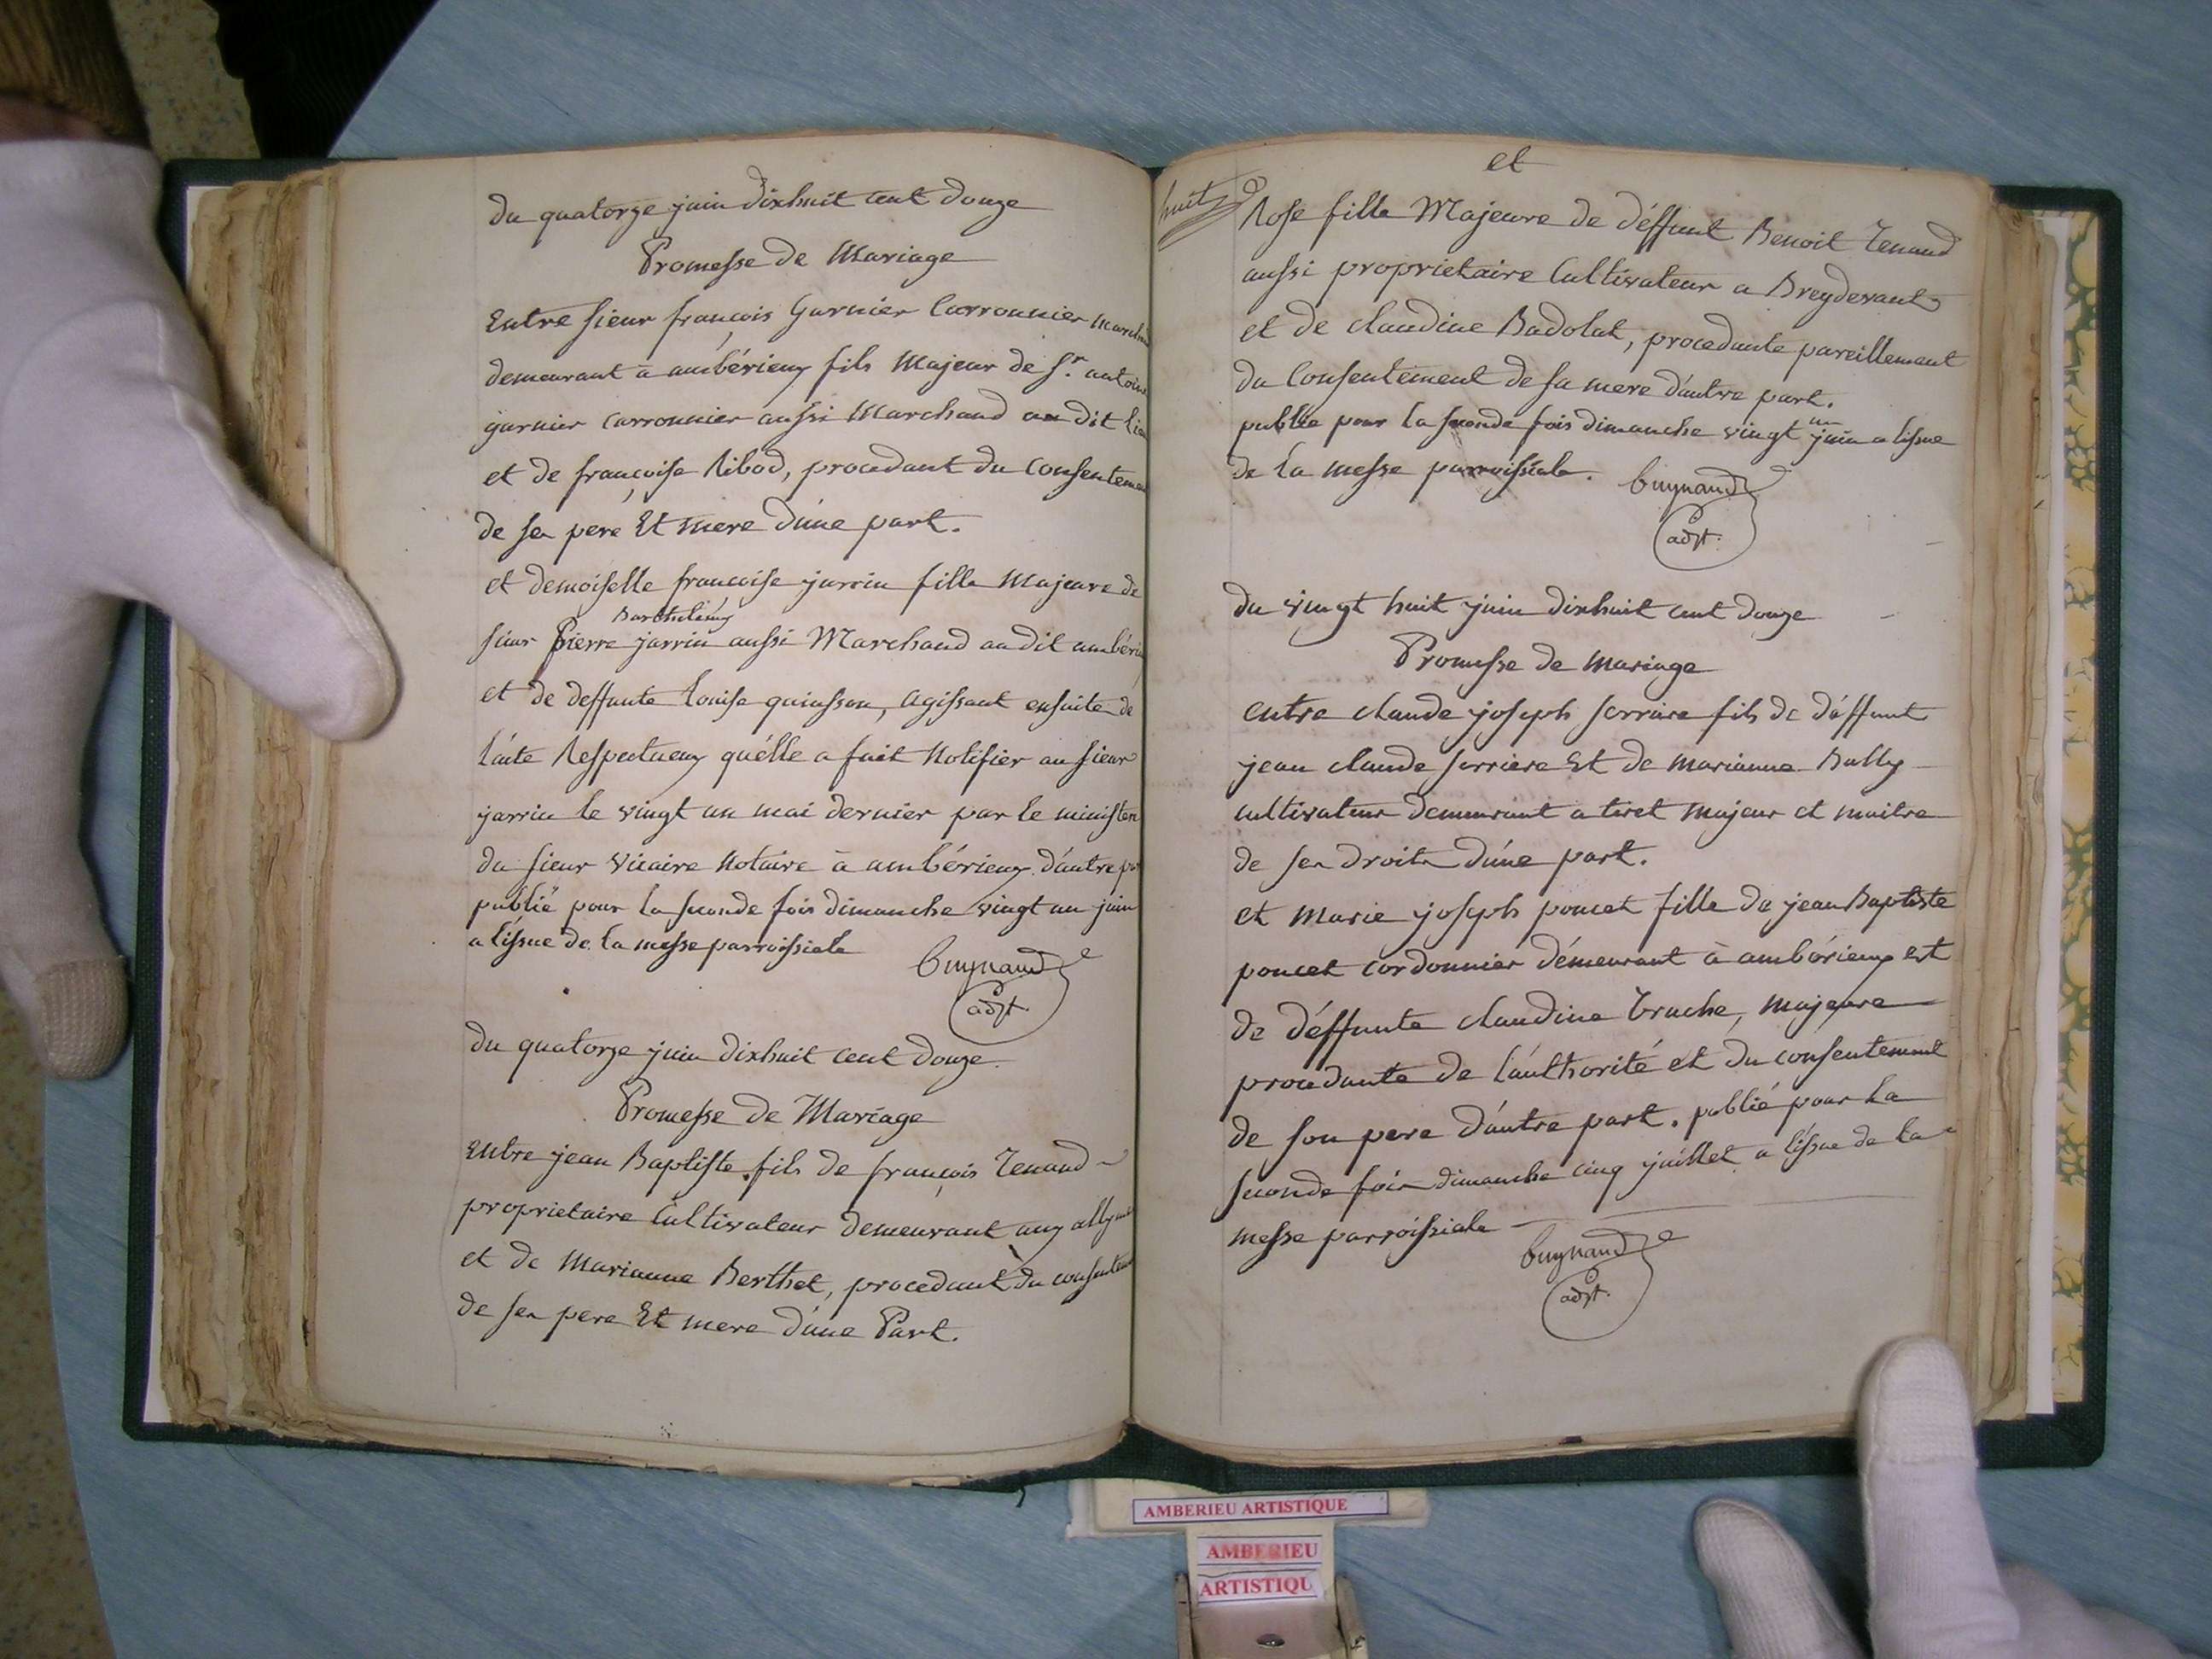 du quatorze juin dixhuit cent douze
Promesse de Mariage
Entre sieur françois Garnier Carronnier
demeurant à ambérieux fils Majeur de Sr. antoine
garnier carronnier aussi Marchand au dit lieu
et de françoise Ribod, procedant du Consentement
de ses pere Et mere d'une part.
et demoiselle françoise jarrin fille Majeure de
Barthelemy
sieur Pierre jarrin aussi Marchand au dit
et de deffunte Louise quinsson, agissant ensuite de
l'acte Respectueux qu'elle a fait Notifier au sieur
jarrin le vingt un mai dernier par le
du sieur Vicaire Notaire à ambérieux d'autre
publié pour la seconde fois dimanche vingt un juin
a lissue de la messe parroissiale
Guynand
adjt.
du quatorze juin dixhuit cent douze.
Promesse de Mariage
Entre jean Baptiste fils de françois Tenand
proprietaire Cultivateur demeurant aux
et de Marianne Berthet, procedant du
de ses pere Et mere d'une Part.
huit
et
Rose fille Majeure de déffunt Benoit Tenand
aussi proprietaire Cultivateur a Breydevant
et de claudine Badolat, procedante pareillement
du Consentement de sa mere d'autre part.
un
publié pour la seconde fois dimanche vingt juin a lissue
de la messe parroissiale.
Guynand
adjt.
du vingt huit juin dixhuit cent douze
Promesse de mariage
entre claude joseph serriere fils de déffunt
jean claude serriere Et de marianne Bully
cultivateur demeurant a tiret majeur et maitre
de ses droits d'une part.
et marie joseph poncet fille de jean Baptiste
poncet cordonnier démeurant à ambérieux et
de déffunte claudine truche, majeure
procedante de l'authorité et du consentement
de son pere d'autre part. publié pour la
seconde fois dimanche cinq juillet a l'issue de la
messe parroissiale
Guynand
adjt.
AMBERIEU ARTISTIQUE
AMBERIEU
ARTISTIQU